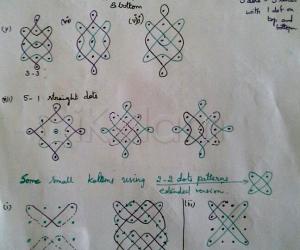 3 bottom
with 1 dot on
top and
bottom
(v)
(vi)
3-3
5-1 straight dots
Some small kolams using 2-2 dots patterns
extended version
(i)
(iii)